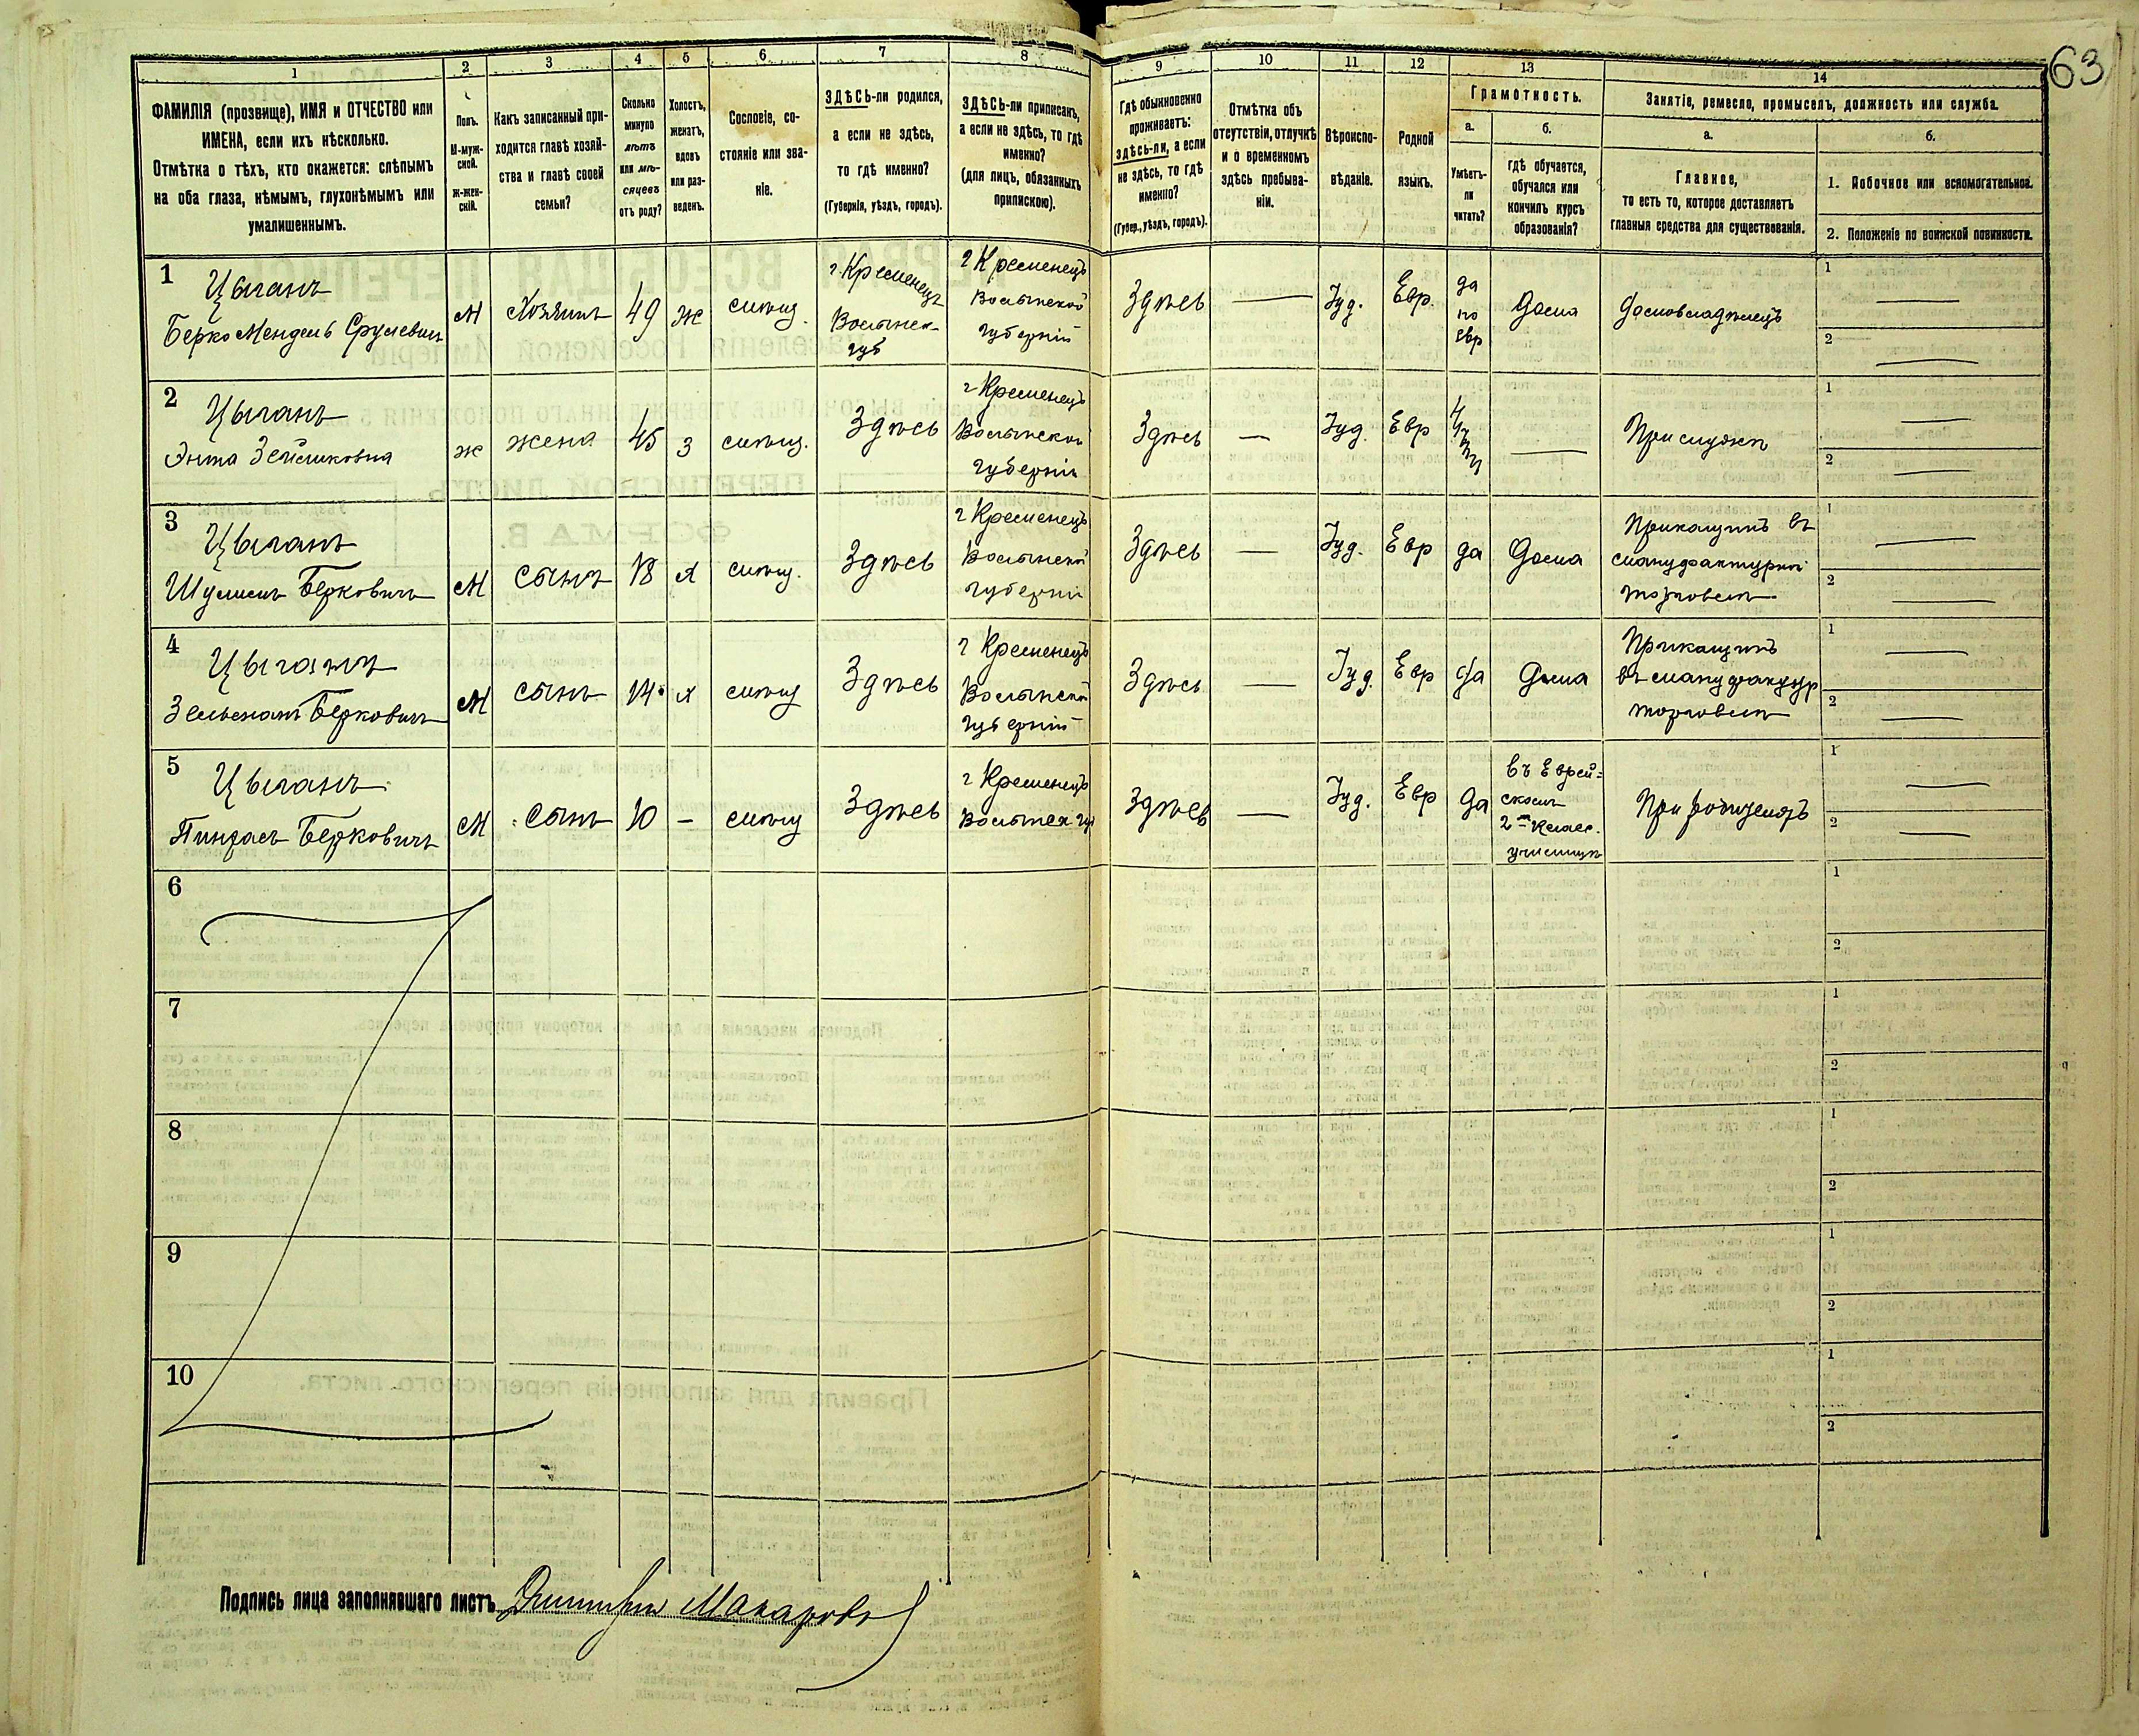 63
1
2
3
4
5
6
7
8
9
10
11
12
13
14
ФАМИЛІЯ (прозвище), ИМЯ и ОТЧЕСТВО или
ИМЕНА, если ихъ нѣсколько.
Отмѣтка о тѣхъ, кто окажется: слѣпымъ
на оба глаза, нѣмымъ, глухонѣмымъ или
умалишеннымъ.
Полъ.
М-муж-
ской.
Ж-жен-
скій.
Какъ записанный при-
ходится главѣ хозяй-
ства и главѣ своей
семьи?
Сколько
минуло
лѣтъ
или мѣ-
сяцевъ
отъ роду?
Холостъ,
женатъ,
вдовъ
или раз-
веденъ.
Сословіе, со-
стояніе или зва-
ніе.
ЗДѢСЬ-ли родился,
а если не здѣсь,
то гдѣ именно?
(Губернія, уѣздъ, городъ).
ЗДѢСЬ-ли приписанъ,
а если не здѣсь, то гдѣ
именно?
(для лицъ, обязанныхъ
припискою).
Гдѣ обыкновенно
проживаетъ:
здѣсь-ли, а если
не здѣсь, то гдѣ
именно?
(Губер., уѣздъ, городъ).
Отмѣтка объ
отсутствіи, отлучкѣ
и о временномъ
здѣсь пребыва-
ніи.
Вѣроиспо-
вѣданіе.
Родной
языкъ.
Грамотность.
а.
б.
Умѣетъ-
ли
читать?
гдѣ обучается,
обучался или
кончилъ курсъ
образованія?
Занятіе, ремесло, промыселъ, должность или служба.
а.
б.
Главное,
то есть то, которое доставляетъ
главныя средства для существованія.
1. Побочное или вспомогательное.
2. Положеніе по воинской повинности.
1
Цыганъ
Берко Мендель Срулевичъ
М
Хозяинъ
49
Ж
г. Кременецъ
Волынск.
губ
г Кременецъ
Волынской
губерніи
Здѣсь
Іуд.
Евр.
да
по
евр
Дома
Домовладѣлецъ
1
2
2
Цыганъ
ж
жена
45
з
Здѣсь
г Кременецъ
Волынской
губерніи
Здѣсь
Іуд.
Евр
При мужѣ
1
2
3
Цыганъ
Берковичъ
М
сынъ
18
х
Здѣсь
г Кременецъ
Волынской
губерніи
Здѣсь
Іуд.
Евр
да
Дома
Прикащикъ въ
мануфактурной
торговлѣ
1
2
4
Цыганъ
Берковичъ
М
сынъ
14
х
Здѣсь
г Кременецъ
Волынской
губерніи
Здѣсь
Іуд.
Евр
да
Дома
Прикащикъ
въ мануфактур
торговлѣ
1
2
5
Цыганъ
Пинхасъ Берковичъ
М
Сынъ
10
Здѣсь
г Кременецъ
Волынск губ
Здѣсь
Іуд.
Евр
да
въ Еврей-
скомъ
2 класс.
училищѣ
При родителяхъ
1
2
6
1
2
7
1
2
8
1
2
9
1
2
10
1
2
Подпись лица заполнявшаго листъ Дмитрій Макаровъ